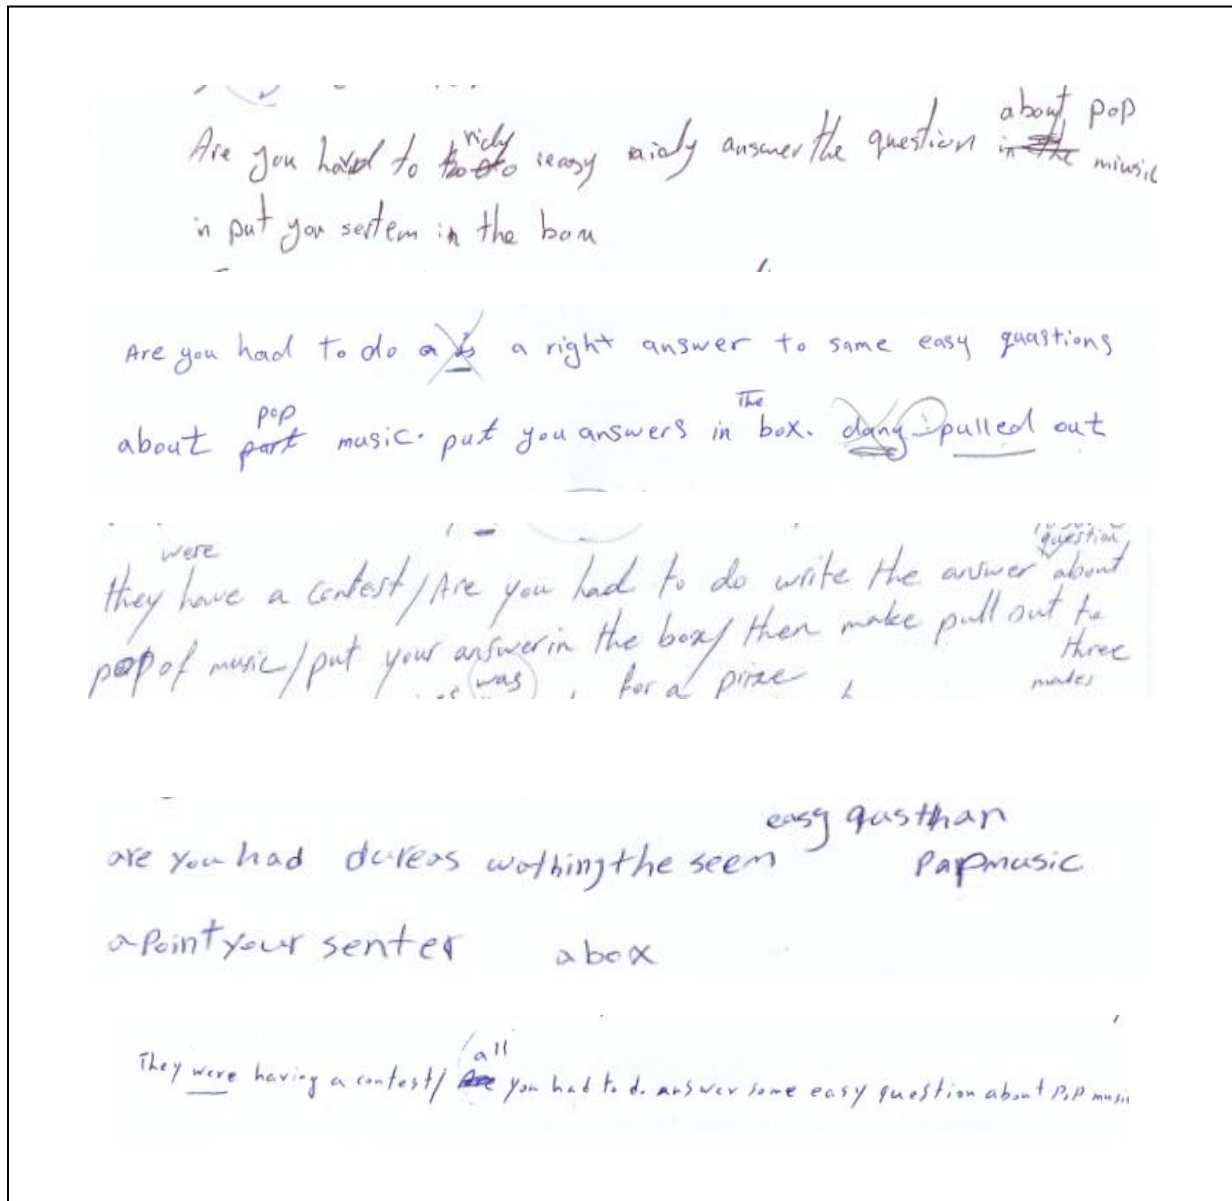 about pop
Are you had to ricly reasy ricly answer the question in the miusic
in put you sestem in the box
Are you had to do a is a right answer to same easy quastions
pop The
about part music. put you answers in box. dany pulled out
question
were
they have a contest/Are you had to do write the answer about
pop of music/put your answer in the box/then make pull out to
three
was for a prize
easy qusthan
are you had do reas wothing the seem
Papmusic
a Point your senter a box
all
They were having a contest/ Are you had to do answer some easy question about Pop music